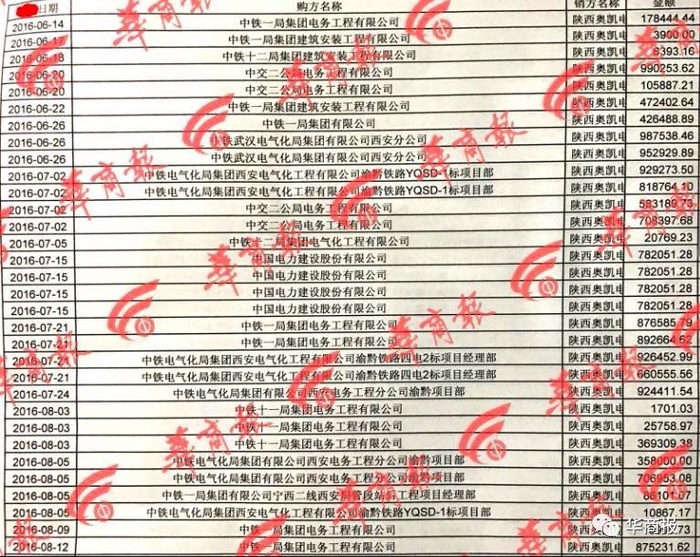 日期 购方名称 销方名称 金额
2016-06-14 中铁一局集团电务工程有限公司 陕西奥凯电 178444.44
2016-06-17 中铁一局集团建筑安装工程有限公司 陕西奥凯电 3900.00
2016-06-18 中铁十二局集团建筑安装工程有限公司 陕西奥凯电 6393.16
2016-06-20 中交二公局电务工程有限公司 陕西奥凯电 990253.62
2016-06-20 中交二公局电务工程有限公司 陕西奥凯电 105887.21
2016-06-22 中铁一局集团建筑安装工程有限公司 陕西奥凯电 472402.64
2016-06-26 中铁一局集团有限公司 陕西奥凯电 426488.89
2016-06-26 中铁武汉电气化局集团有限公司西安分公司 陕西奥凯电 987538.46
2016-06-26 中铁武汉电气化局集团有限公司西安分公司 陕西奥凯电 952929.89
2016-07-02 中铁电气化局集团西安电气化工程有限公司渝黔铁路YQSD-1标项目部 陕西奥凯电 929273.50
2016-07-02 中铁电气化局集团西安电气化工程有限公司渝黔铁路YQSD-1标项目部 陕西奥凯电 818764.10
2016-07-02 中交二公局电务工程有限公司 陕西奥凯电 583189.73
2016-07-02 中交二公局电务工程有限公司 陕西奥凯电 708397.68
2016-07-05 中铁十二局集团电气化工程有限公司 陕西奥凯电 20769.23
2016-07-15 中国电力建设股份有限公司 陕西奥凯电 782051.28
2016-07-15 中国电力建设股份有限公司 陕西奥凯电 782051.28
2016-07-15 中国电力建设股份有限公司 陕西奥凯电 782051.28
2016-07-15 中国电力建设股份有限公司 陕西奥凯电 782051.28
2016-07-21 中铁一局集团电务工程有限公司 陕西奥凯电 876585.79
2016-07-21 中铁一局集团电务工程有限公司 陕西奥凯电 892664.62
2016-07-21 中铁电气化局集团西安电气化工程有限公司渝黔铁路四电2标项目经理部 陕西奥凯电 926452.99
2016-07-21 中铁电气化局集团西安电气化工程有限公司渝黔铁路四电2标项目经理部 陕西奥凯电 660555.56
2016-07-24 中铁电气化局集团有限公司西安电务工程分公司渝黔项目部 陕西奥凯电 924411.54
2016-08-03 中铁十一局集团电务工程有限公司 陕西奥凯电 1701.03
2016-08-03 中铁十一局集团电务工程有限公司 陕西奥凯电 25758.97
2016-08-03 中铁十一局集团电务工程有限公司 陕西奥凯电 369309.38
2016-08-05 中铁电气化局集团有限公司西安电务工程分公司渝黔项目部 陕西奥凯电 358000.00
2016-08-05 中铁电气化局集团有限公司西安电务工程分公司渝黔项目部 陕西奥凯电 706953.08
2016-08-05 中铁一局集团有限公司宁西二线西安局管段站后工程项目经理部 陕西奥凯电 86101.07
2016-08-05 中铁电气化局集团西安电气化工程有限公司渝黔铁路YQSD-1标项目部 陕西奥凯电 10867.17
2016-08-09 中铁一局集团电务工程有限公司 陕西奥凯电
2016-08-12 中铁一局集团电务工程有限公司 陕西奥凯电 875231.62
華商報
華商報
華商報
華商報
華商報
華商報
華商報
華商報
华商报